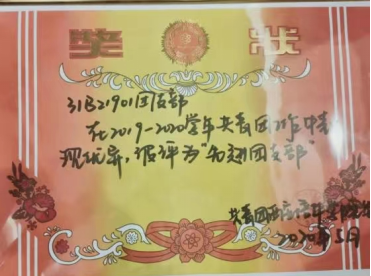 奖 状
31B21901团支部
在2019-2020学年共青团工作中表
现优异，被评为“先进团支部”
共青团
2020年5月